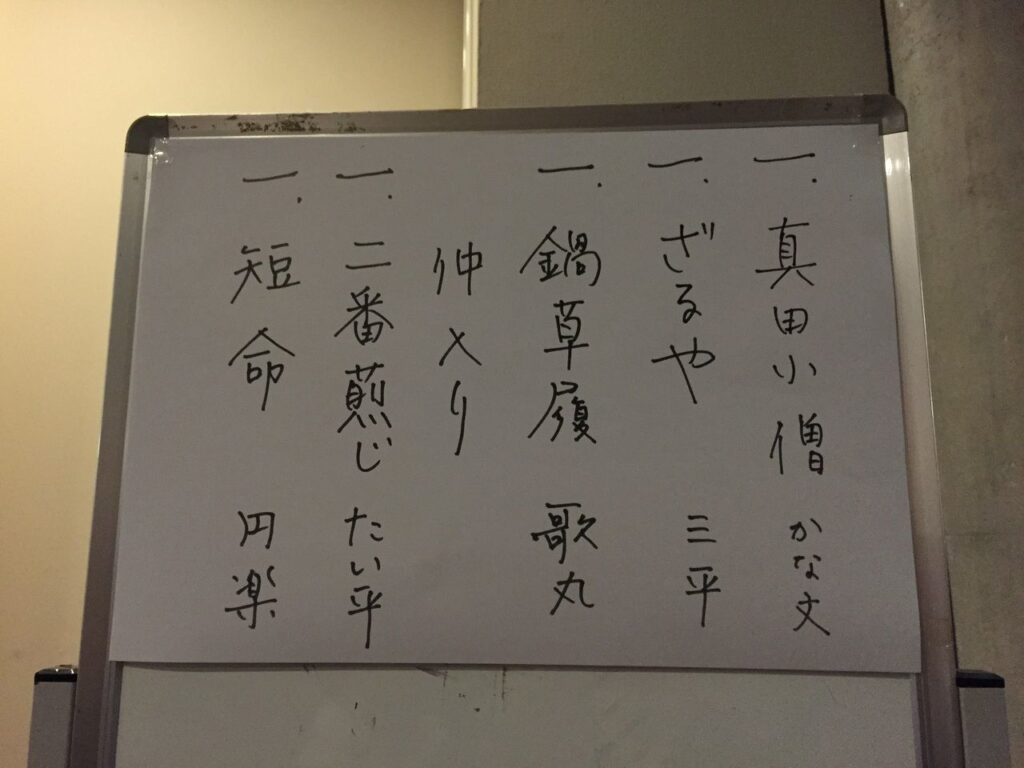 一. 真田小僧 かな文
一. ざるや 三平
一. 鍋草履 歌丸
仲入り
一. 二番煎じ たい平
一. 短命 円楽